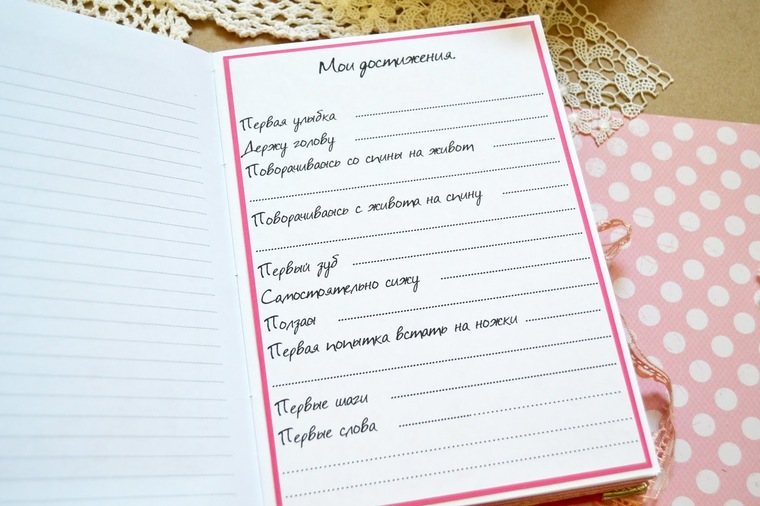 Мои достижения
Первая улыбка
Держу голову
Поворачиваюсь со спины на живот
Поворачиваюсь с живота на спину
Первый зуб
Самостоятельно сижу
Ползаю
Первая попытка встать на ножки
Первые шаги
Первые слова